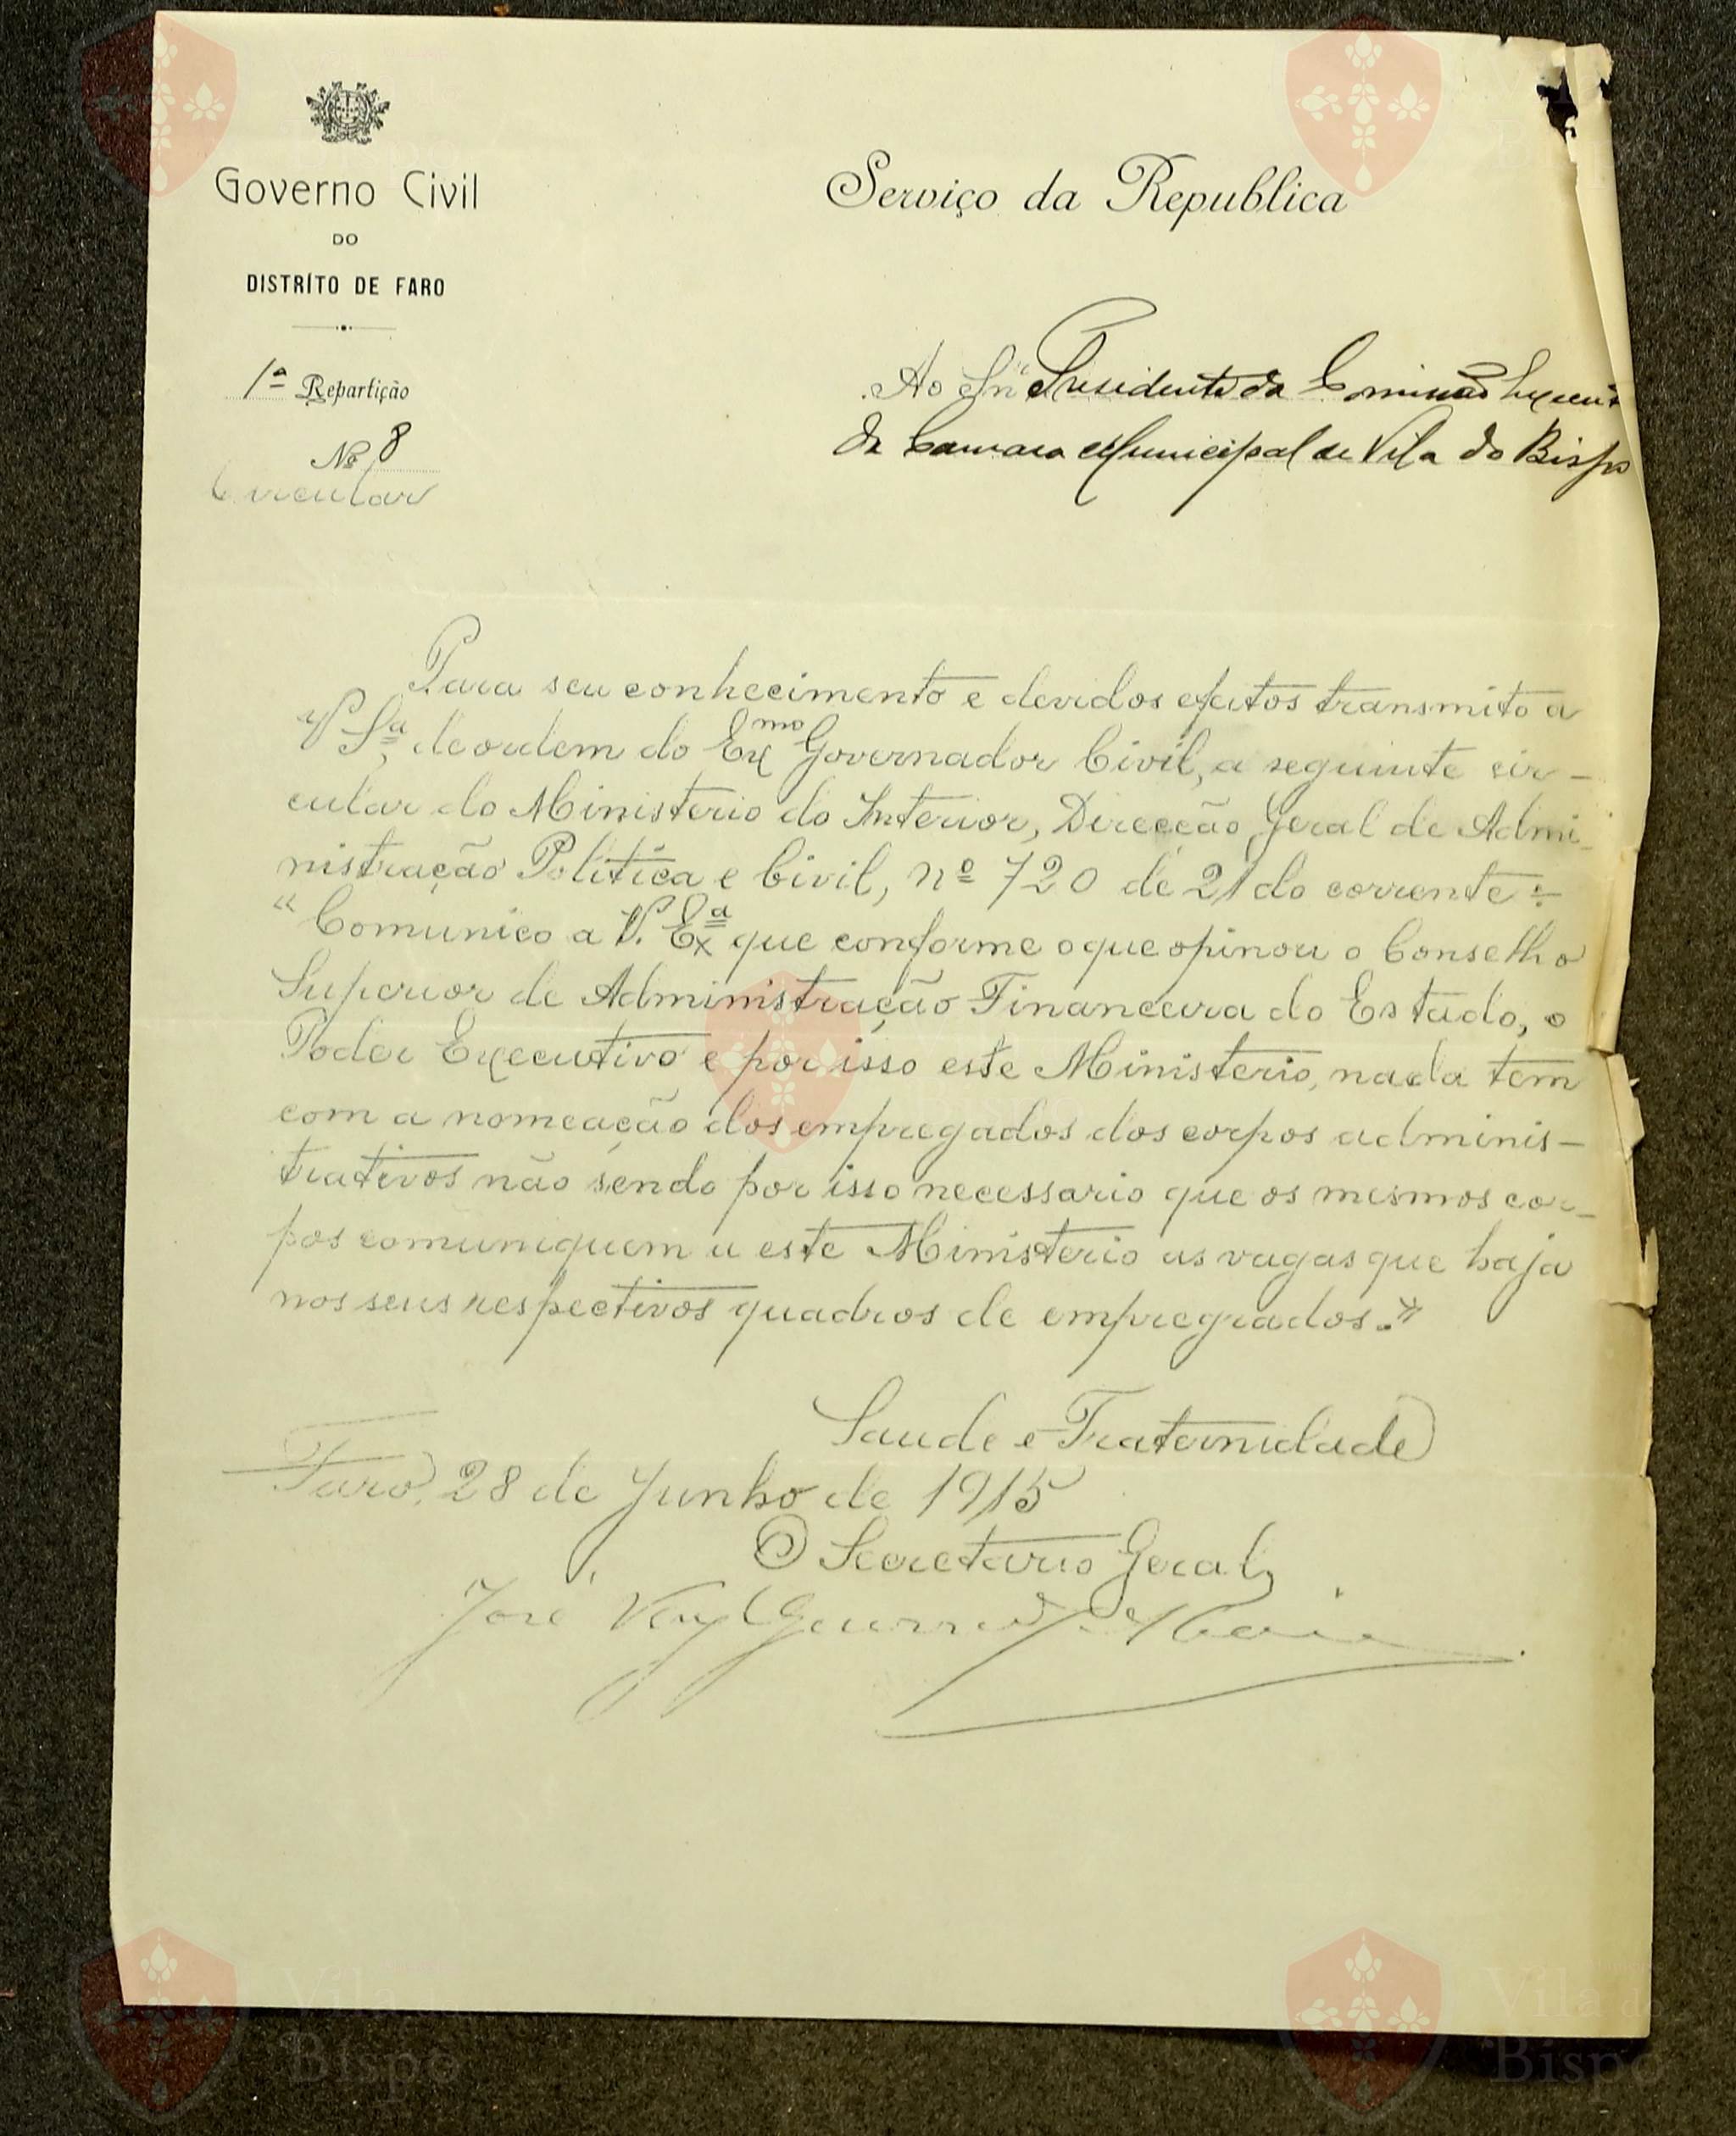 Governo Civil
DO
DISTRÍTO DE FARO
1ª Repartição
Nº 8
Circular
Serviço da Republica
Ao Snr. Presidente da Comissão Execut
da Camara Municipal de Vila do Bispo
Para seu conhecimento e devidos efeitos transmito a
V. Sª, de ordem do Exmo Governador Civil, a seguinte cir-
cular do Ministerio do Interior, Direcção Geral de Admi-
nistração Politica e Civil, nº 720 de 21 do corrente:
"Comunico a V. Exª que conforme o que opinou o Conselho
Superior de Administração Financeira do Estado, o
Poder Executivo e por isso este Ministerio, nada tem
com a nomeação dos empregados dos corpos adminis-
trativos não sendo por isso necessario que os mesmos cor-
pos comuniquem a este Ministerio as vagas que haja
nos seus respectivos quadros de empregrados."
Saude e Fraternidade
Faro, 28 de Junho de 1915
O Secretario Geral,
José Vaz Guerreiro
Vila do
Bispo
Vila do
Bispo